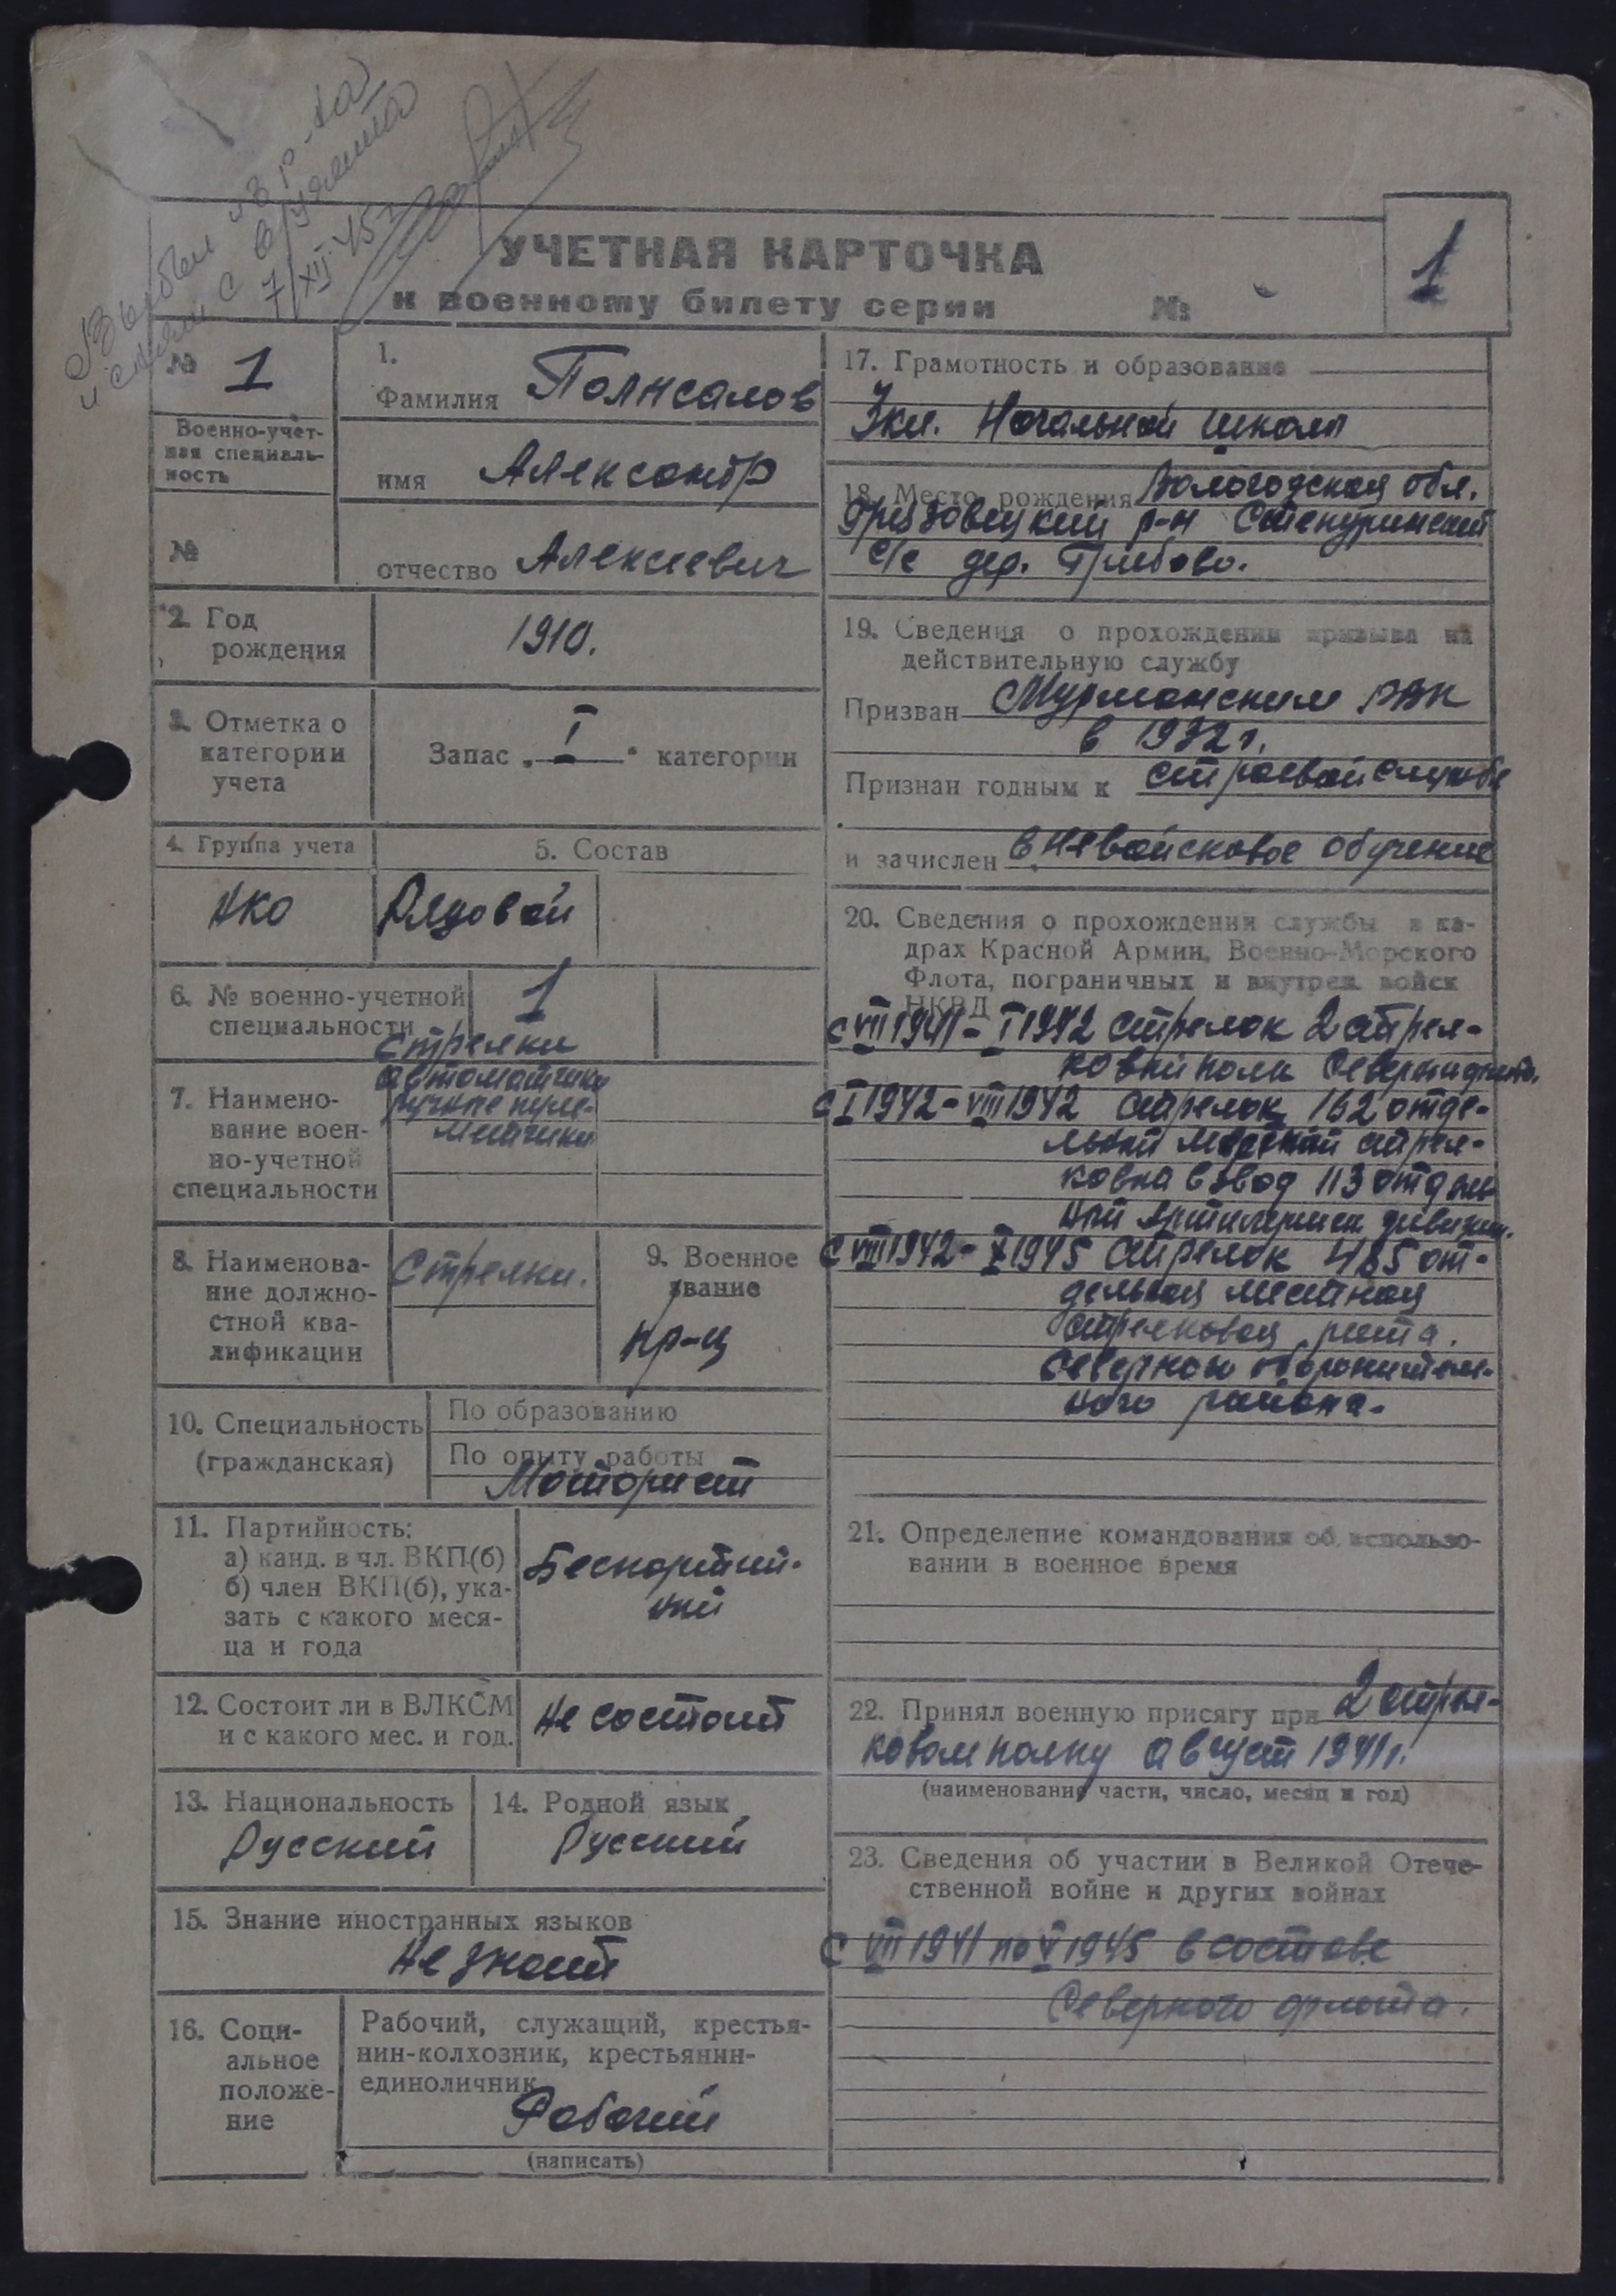 Выбыл из р-на
и снят с в/учета
7/XII-45г.
УЧЕТНАЯ КАРТОЧКА
к военному билету серии №
1
№ 1
Военно-учет-
ная специаль-
ность
№
1.
Фамилия Полисалов
имя Александр
отчество Алексеевич
2. Год
рождения
1910.
3. Отметка о
категории
учета
Запас „ I " категории
4. Группа учета
5. Состав
НКО
Рядовой
6. № военно-учетной
специальности
1
7. Наимено-
вание воен-
но-учетной
специальности
Стрелки
автоматчики
ручные пуле-
метчики
8. Наименова-
ние должно-
стной ква-
лификации
Стрелки.
9. Военное
звание
кр-ц
10. Специальность
(гражданская)
По образованию
По опыту работы
Моторист
11. Партийность:
а) канд. в чл. ВКП(б)
б) член ВКП(б), ука-
зать с какого меся-
ца и года
Беспартий-
ный
12. Состоит ли в ВЛКСМ
и с какого мес. и год.
Не состоит
13. Национальность
Русский
14. Родной язык
Русский
15. Знание иностранных языков
Не знает
16. Соци-
альное
положе-
ние
Рабочий, служащий, крестья-
нин-колхозник, крестьянин-
единоличник
Рабочий
(написать)
17. Грамотность и образование
3кл. Начальной школы
18. Место рождения Вологодская обл.
Грязовецкий р-н
с/с дер. Глебово.
19. Сведения о прохождении призыва на
действительную службу
Призван Мурманским РВК
в 1932г.
Признан годным к строевой службе
и зачислен в невойсковое обучение
20. Сведения о прохождении службы в ка-
драх Красной Армии, Военно-Морского
Флота, пограничных и внутрен. войск
НКВД
с VIII 1941 - I 1942 стрелок 2 стрел-
ковый полк
с I 1942 - VIII 1942 стрелок 162 отде-
льный стрел-
взвод 113 отдель
ной
с VIII 1942 - X 1945 стрелок 485 от-
дельная местная
стрелковая рота.
Северного оборонитель-
ного района.
21. Определение командования об использо-
вании в военное время
22. Принял военную присягу при 2 стрел-
ковом полку август 1941г.
(наименование части, число, месяц и год)
23. Сведения об участии в Великой Отече-
ственной войне и других войнах
С VIII 1941 по V 1945 в составе
Северного флота.